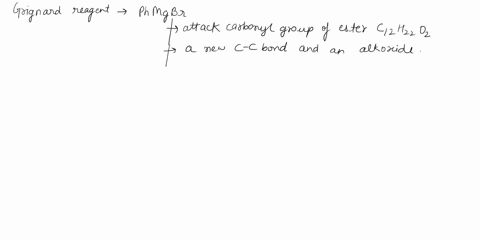 Grignard reagent → PhMgBr
→ attack carbonyl group of ester C12H22O2
→ a new C-C bond and an alkoxide.